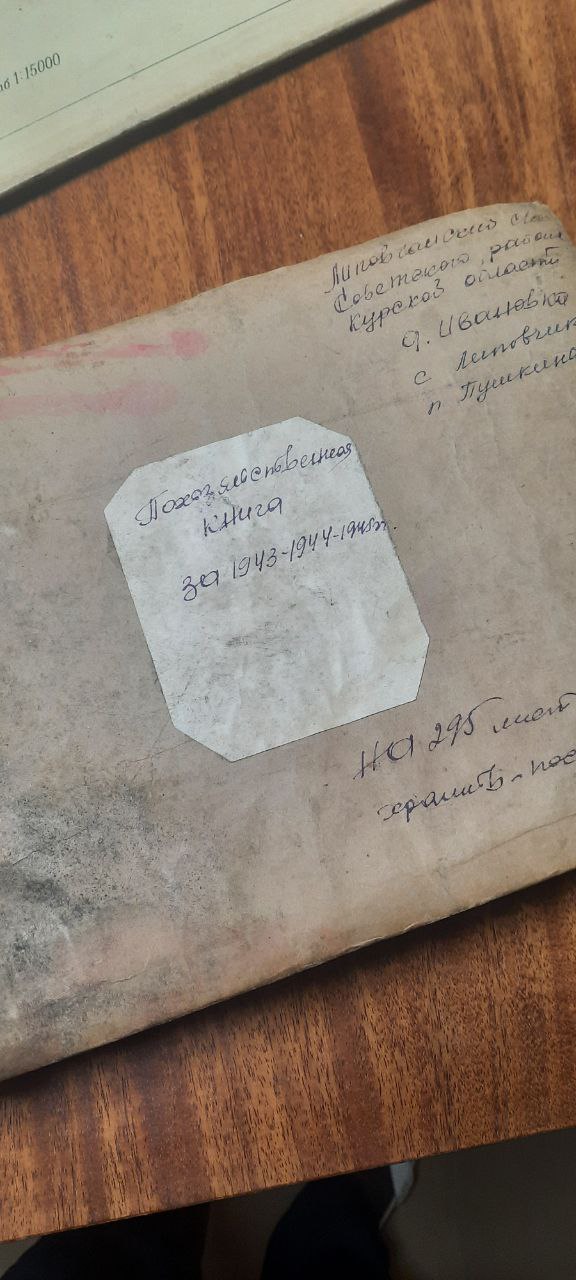 1:15000
Липовчанский
Советского района
Курской области
д. Ивановка
с Липовчик
п Пушкина
Похозяйственная
книга
за 1943-1944-1945гг.
на 295 лист
хранить-пос